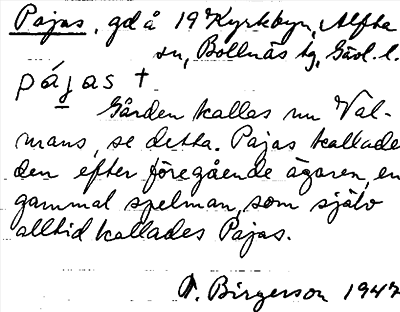 Pajas, gd å 19 Kyrkbyn, Alfta
sn, Bollnäs tg, Gävl. l.
pájas †
Gården kallas nu Val-
mans, se detta. Pajas kallade
den efter föregående ägaren, en
gammal spelman, som själv
alltid kallades Pajas.
A. Birgerson 1947